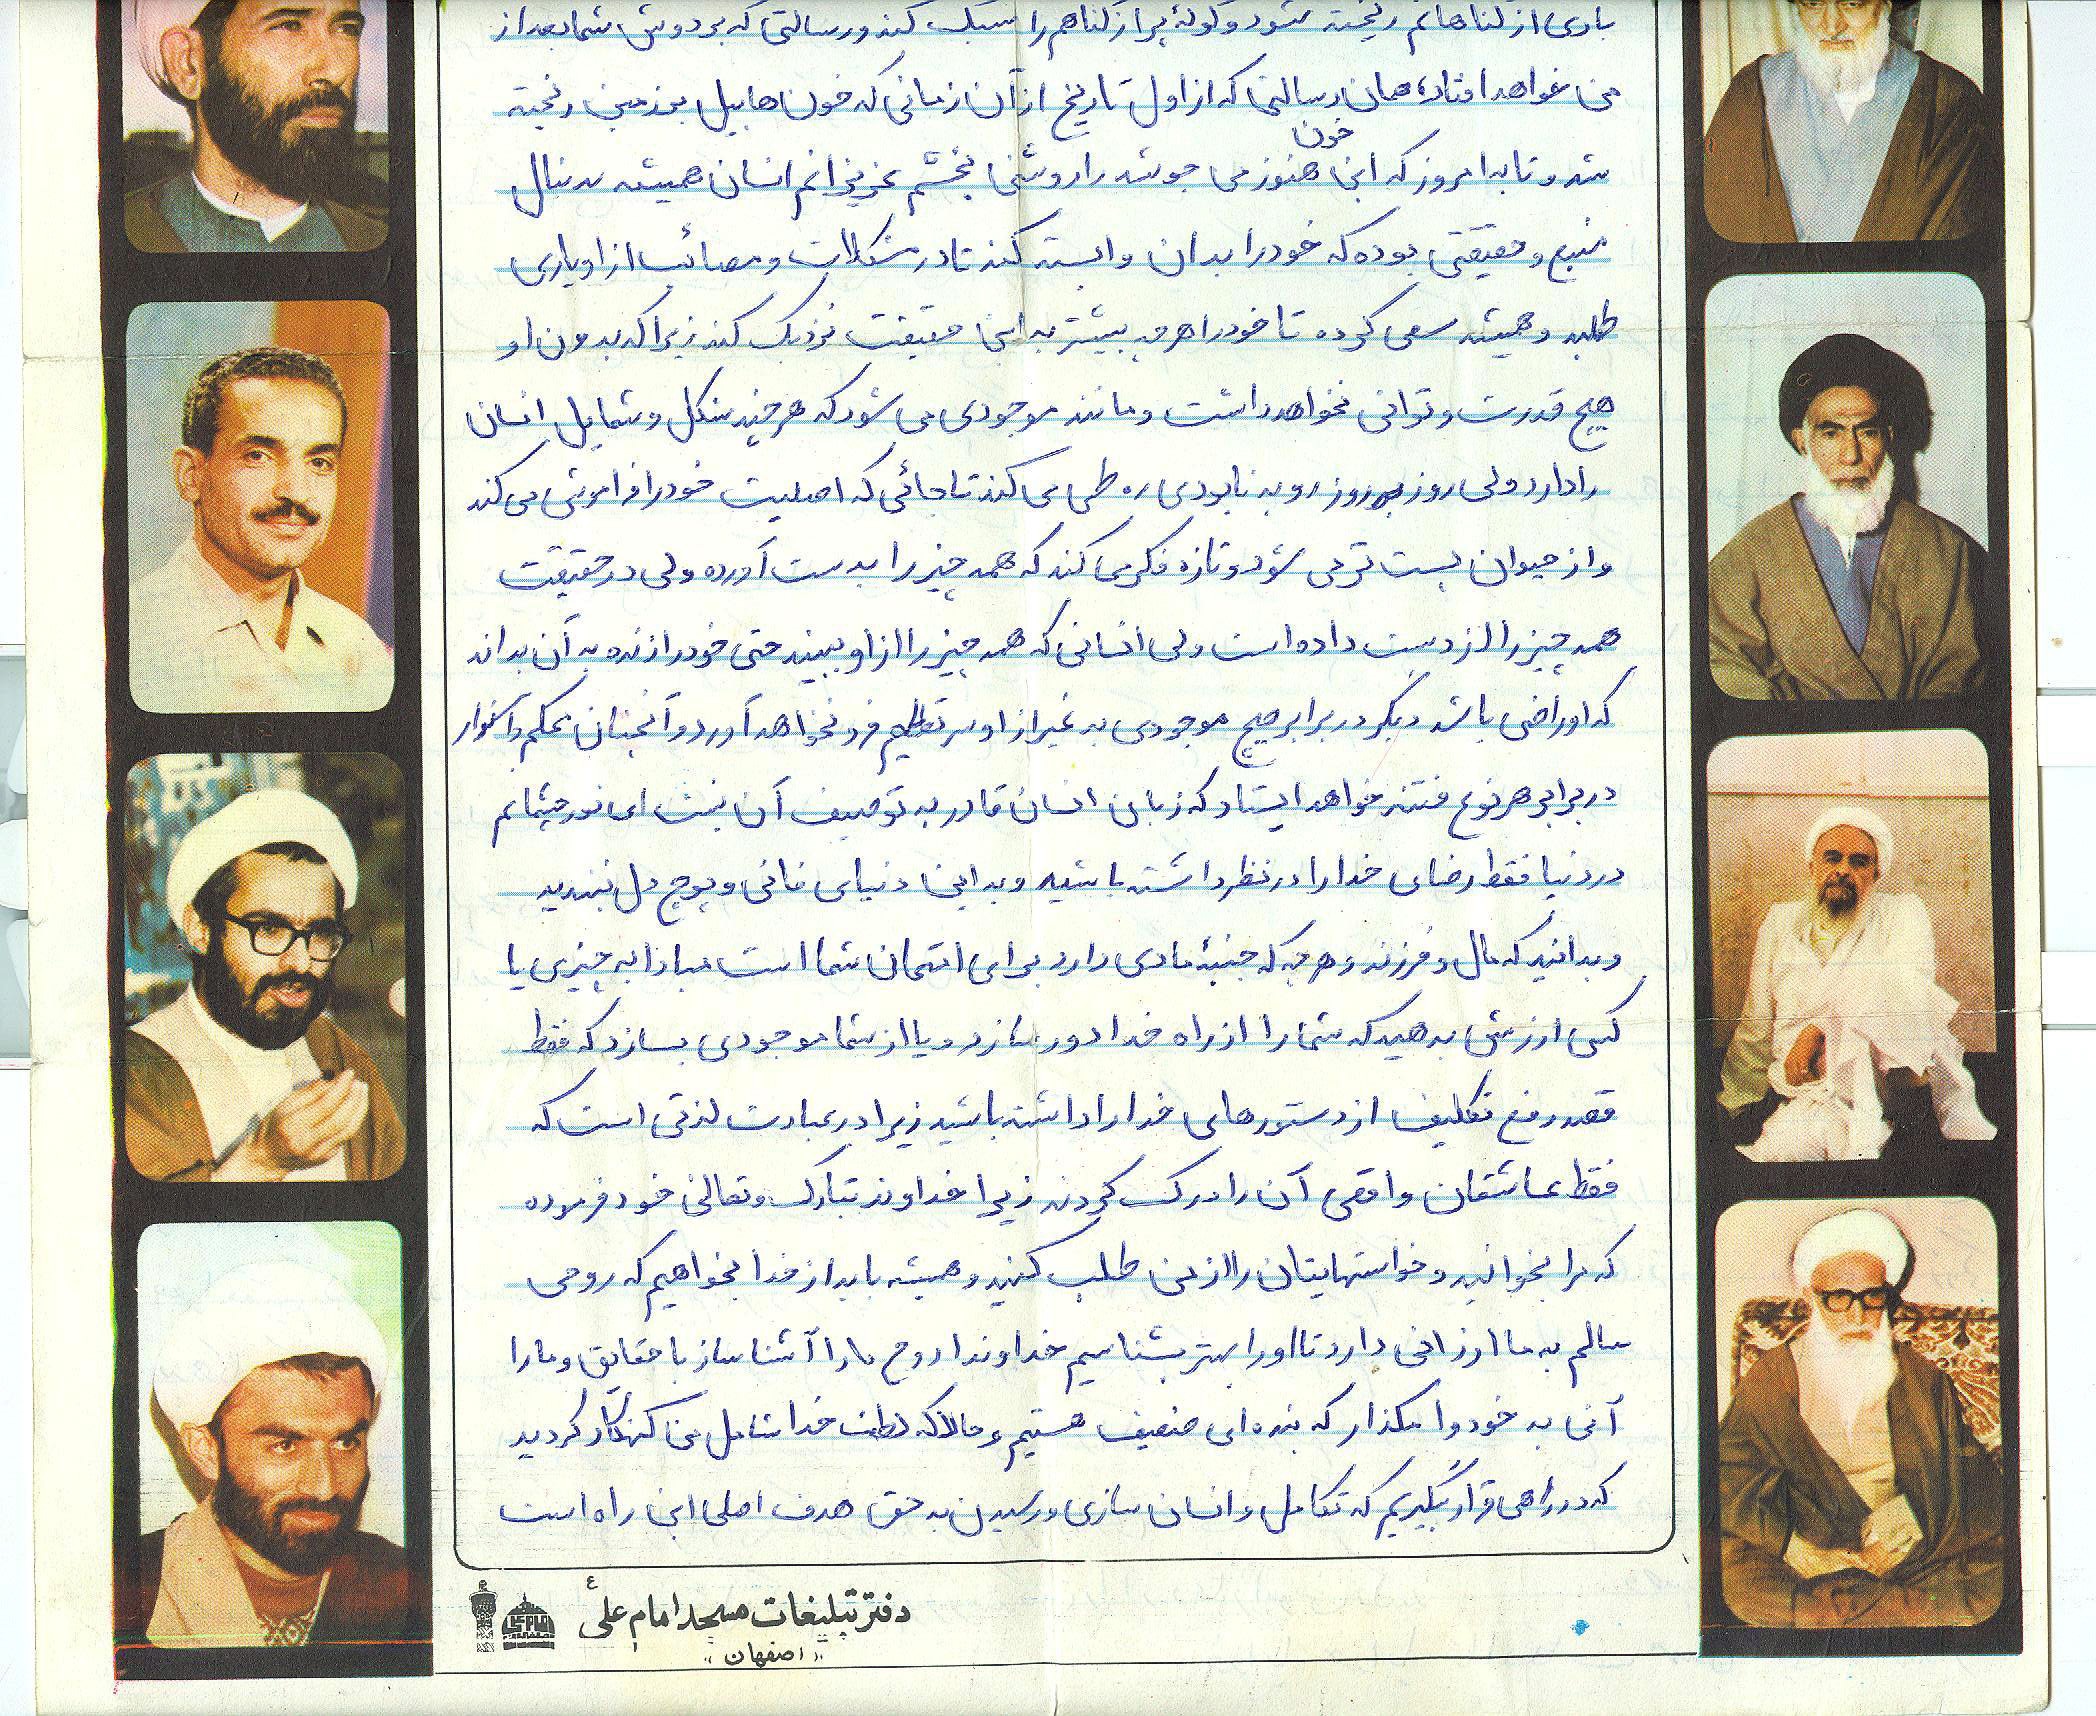 باری از گناهانم ریخته شود و کولهٔ پر از گناهم را سبک کند و رسالتی که بر دوش شما بعد از
من خواهد افتاد همان رسالتی که از اول تاریخ از آن زمانی که خون هابیل بر زمین ریخته
شد و تا به امروز که این خون هنوز می جوشد را روشنی بخشم عزیزانم انسان همیشه به دنبال
منبع و حقیقتی بوده که خود را بدان وابسته کند تا در مشکلات و مصائب از او یاری
طلبد و همیشه سعی کرده تا خود را هر چه بیشتر به این حقیقت نزدیک کند زیرا که بدون او
هیچ قدرت و توانی نخواهد داشت و مانند موجودی می شود که هر چند شکل و شمایل انسان
را دارد ولی روز به روز رو به نابودی ره طی می کند تا جائی که اصلیت خود را فراموش می کند
و از حیوان پست تر می شود و تازه فکر می کند که همه چیز را بدست آورده ولی در حقیقت
همه چیز را از دست داده است ولی انسانی که همه چیز را از او ببیند حتی خود را زنده به آن بداند
که او راضی باشد دیگر در برابر هیچ موجودی به غیر از او سر تعظیم فرو نخواهد آورد و آنچنان محکم و استوار
در برابر هر نوع فتنه خواهد ایستاد که زبان انسان قادر به توصیف آن نیست ای نور چشمانم
در دنیا فقط رضای خدا را در نظر داشته باشید و به این دنیای فانی و پوچ دل نبندید
و بدانید که مال و فرزند و هر چه که جنبهٔ مادی دارد برای امتحان شما است مبادا به چیزی یا
کسی ارزشی بدهید که شما را از راه خدا دور سازد و یا از شما موجودی بسازد که فقط
قصد رفع تکلیف از دستورهای خدا را داشته باشید زیرا در عبادت لذتی است که
فقط عاشقان واقعی آن را درک کردند زیرا خداوند تبارک و تعالی خود فرموده
که مرا بخوانید و خواستهایتان را از من طلب کنید و همیشه باید از خدا بخواهیم که روحی
سالم به ما ارزانی دارد تا او را بهتر بشناسیم خداوندا روح ما را آشنا ساز با حقایق و ما را
آنی به خود وا مگذار که بنده ای ضعیف هستیم و حالا که لطف خدا شامل من گنهکار گردید
که در راهی قرار بگیریم که تکامل و انسان سازی و رسیدن به حق هدف اصلی این راه است
دفتر تبلیغات مسجد امام علی ع
"اصفهان"